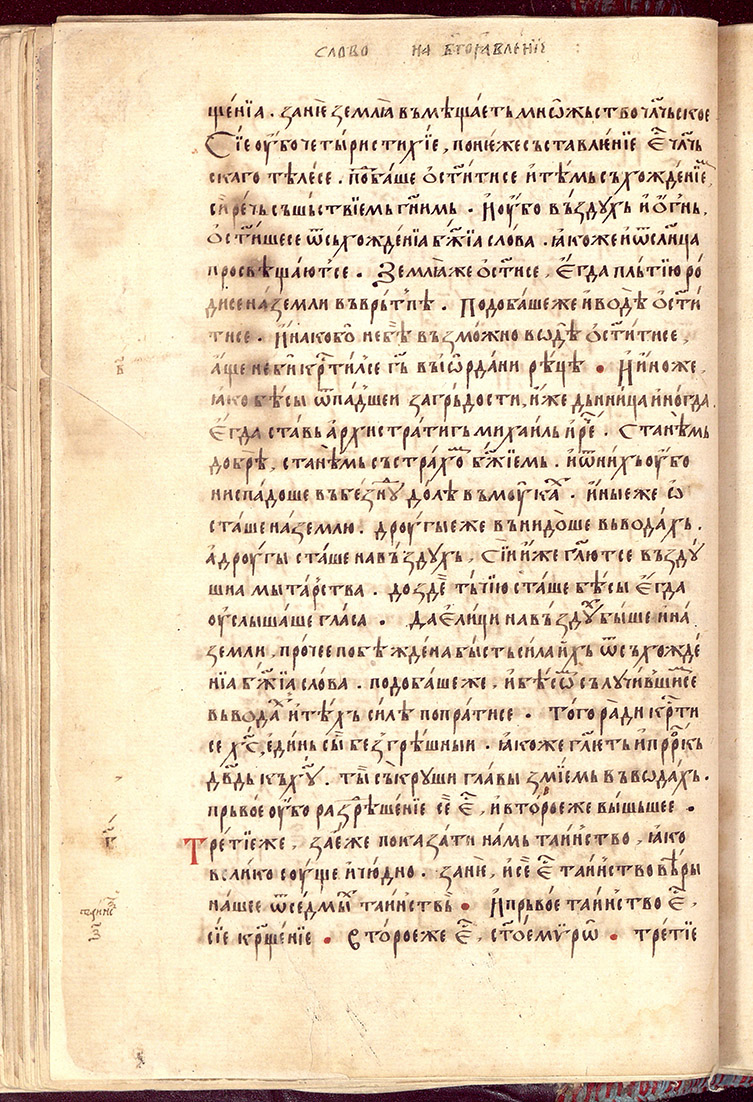 слово на бг҃оꙗвленїе
щенїа. занѥ землꙗ въмѣщаеть мнѡжьство чл҃чьское
Сїе оубо четыри стихїе, понеже съставленїе ѥ҆ чл҃чь
скаго тѣлесе. подобаше ѡст҃итисе и҆ тѣмь съхожденїем
сирѣчь съшьствїемь гн҃имь. И оубо въздухь и҆ ѻ҆гнь,
ѡст҃ишесе ѿ съхожденїа б҃жїа слова. ꙗкоже и҆ ѿ сл҃нца
просвѣщаютсе. Землꙗ же ѡст҃исе, Ѥгда плътїю ро
дисе на земли въ врьтпѣ. Подобаше же и водѣ ѡст҃и
тисе. И҆нако бо не бѣ възможно водѣ ѡст҃итисе,
аще не би кр҃тилсе г҃ь въ їѡрдани рѣцѣ • И҆ ино же,
ꙗко бѣсы ѿпадшеи за грьдости, и҆же дьнница и҆ногда
Ѥгда ставь архистратигь михаиль и҆ ре҃. Станѣмь
добрѣ, станѣмь съ страхѡм б҃жїемь. и҆ ѿ нихь оубо
ниспадоше въ безнꙋ долѣ въ моуках. и҆ныеже ѡ
сташе на землю. дроугыеже вънидоше въ водахь.
а дроугы сташе на въздухь, Сїи и҆же гл҃ютсе възду
шна мытарства. до зде тьчїю сташе бѣсы Ѥгда
оуслышаше гласа • Да ѥлици на въздꙋх быше и на
земли, прочее побѣждена бысть сила и҆хь ѿ съхожде
нїа б҃жїа слова. подобаше же, и бѣсѡм слꙋчившїимсе
въ водах и҆ тѣхь силѣ попратисе • Того ради кр҃ти
се х҃с, единь сы безгрѣшныи. ꙗкоже гл҃еть и пррⷪ҇кь
дв҃дь къ х҃ꙋ. ты съкруши главы змїемь въ водахь.
прьвое оубо разрѣшенїе се ѥ҆, и второеже вышьшее •
Третїеже, за еже показати намь таинство, ꙗко
велико соуще и чюдно. занѥ, и се ѥ҆ таинство вѣры
нашее ѿ седмых таинствь • И прьвое таинство ѥ҆,
сїе кр҃щенїе • Второеже ѥ҆, ст҃ое мѵрѡ • третїе